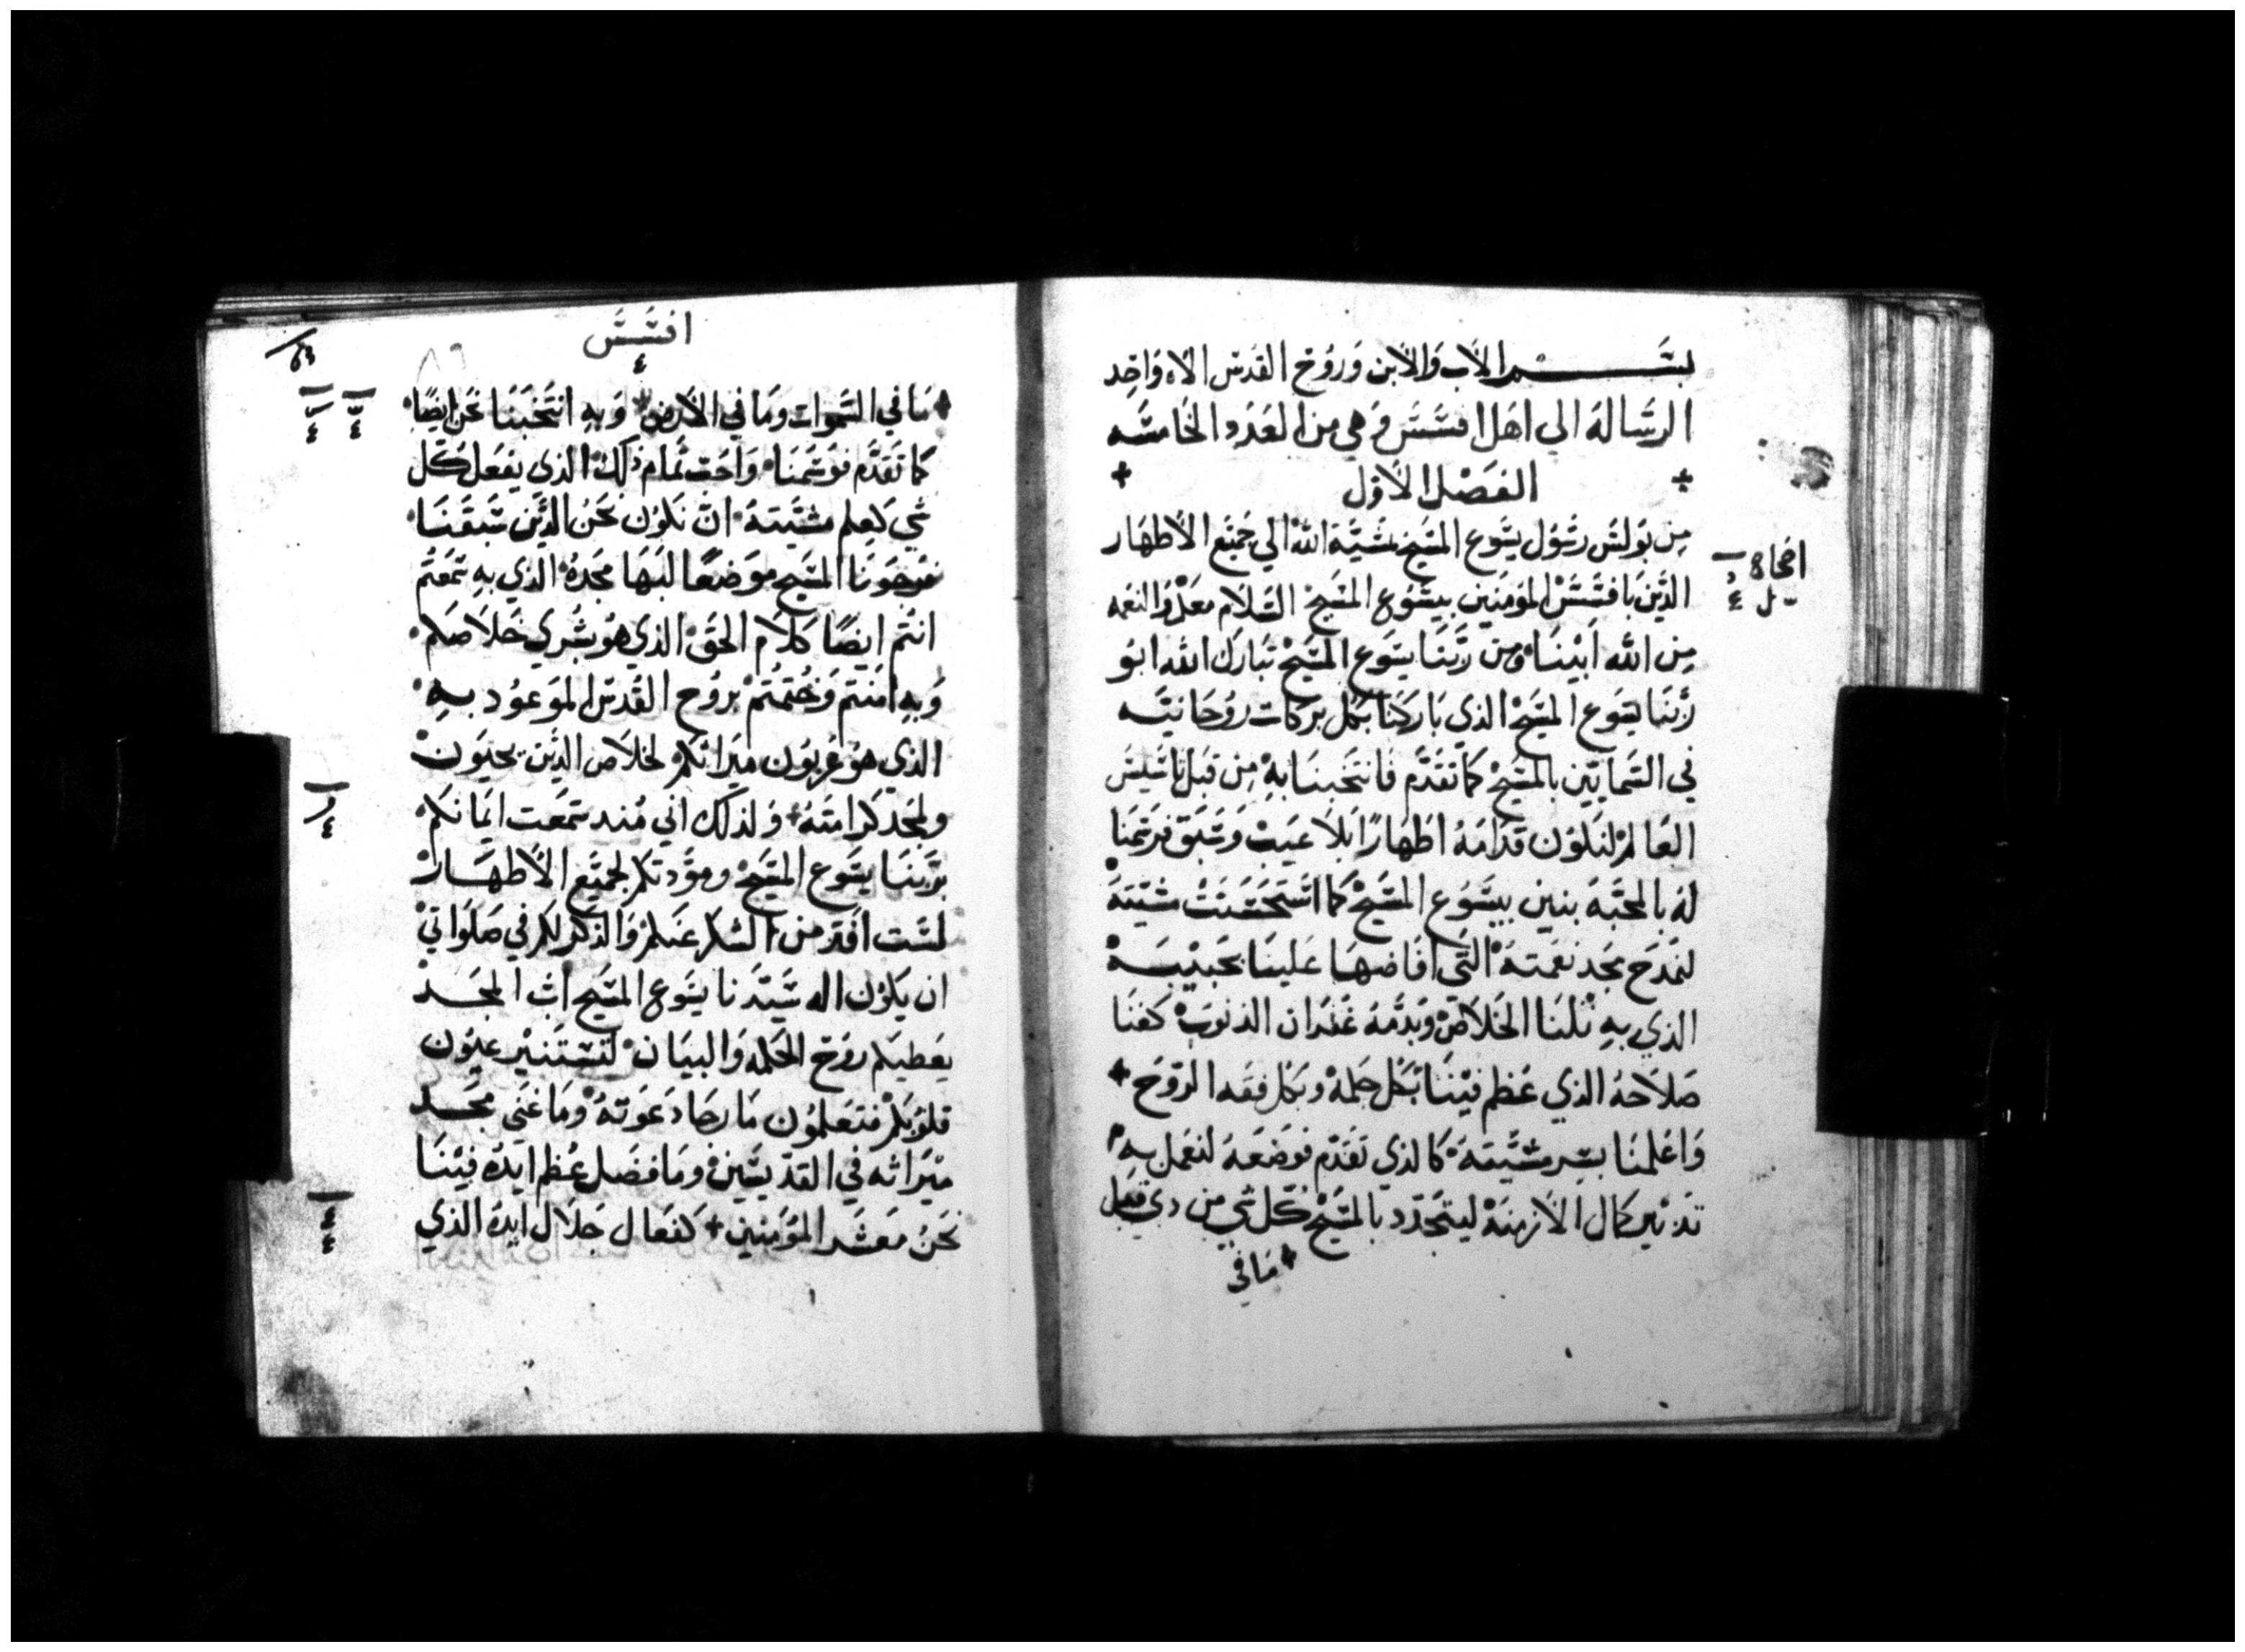 بسم الاب والابن وروح القدس الاه واحد
الرسالة الي اهل افسس وهي من العدد الخامسه
الفصل الاول
من بولس رسول يسوع المسيح بمشية الله الي جميع الاطهار
الذين بافسس المومنين بيسوع المسيح السلام معكم والنعمه
من الله ابينا ومن ربنا يسوع المسيح تبارك الله ابو
ربنا يسوع المسيح الذي باركنا بكل بركات روحانيه
في السمايين بالمسيح كما تقدم فانتخبنا به من قبل تاسيس
العالم لنكون قدامه اطهارا بلا عيب وسبق فرسمنا
له بالمحبة بنين بيسوع المسيح كما استحسنت مشيته
لنمدح مجد نعمته التي افاضها علينا بحبيبه
الذي به نلنا الخلاص وبدمه غفران الذنوب كغنا
صلاحه الذي عظم فينا بكل حكمة وبكل فقه الروح
واعلمنا بسر مشيته كالذي تقدم فوضعه لنعمل به
تدبير كمال الازمنة ليتجدد بالمسيح كل شي من ذي قبل
ما في
افسس
ما في السموات وما في الارض وبه انتخبنا نحن ايضا
كما تقدم فوسمنا واحب تمام ذلك الذي يفعل كل
شي كعلم مشيته ان نكون نحن الذين سبقنا
فرجونا المسيح موضعا لبها مجده الذي به سمعتم
انتم ايضا كلام الحق الذي هو بشري خلاصكم
وبه امنتم وختمتم بروح القدس الموعود به
الذي هو عربون ميراثكم لخلاص الذين يحيون
ولمجد كرامته ولذلك اني منذ سمعت ايمانكم
بربنا يسوع المسيح ومودتكم لجميع الاطهار
لست افتر من الشكر عنكم والذكر لكم في صلواتي
ان يكون اله سيدنا يسوع المسيح اب المجد
يعطيكم روح الحكمه والبيان لتستنير عيون
قلوبكم فتعلمون ما رجا دعوته وما غني مجد
ميراثه في القديسين وما فضل عظم ايده فينا
نحن معشر المومنين كفعال جلال ايده الذي